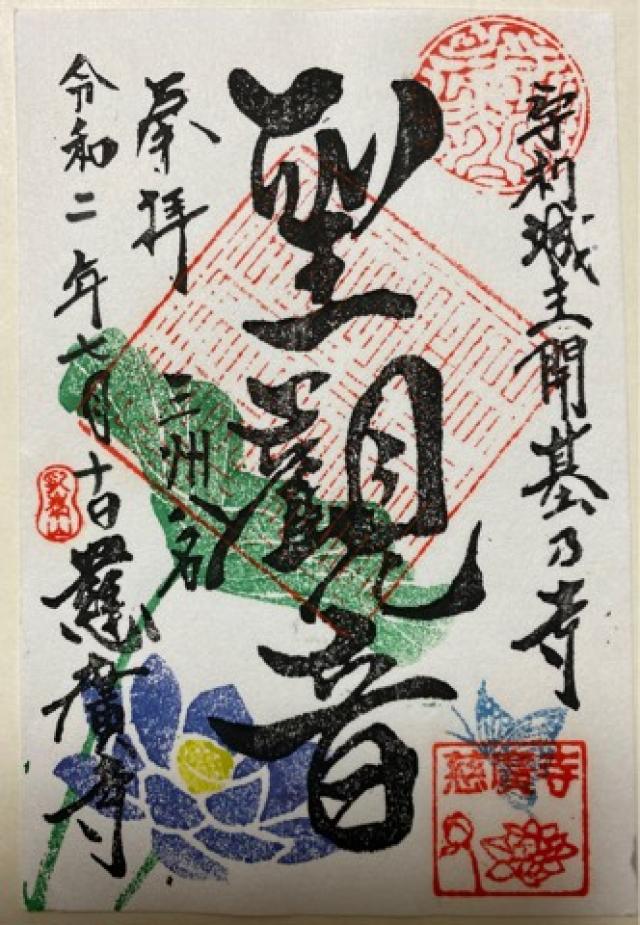 宇利城主開基乃寺
聖観音
奉拝
三州
令和二年七月十日
慈廣寺
慈廣寺